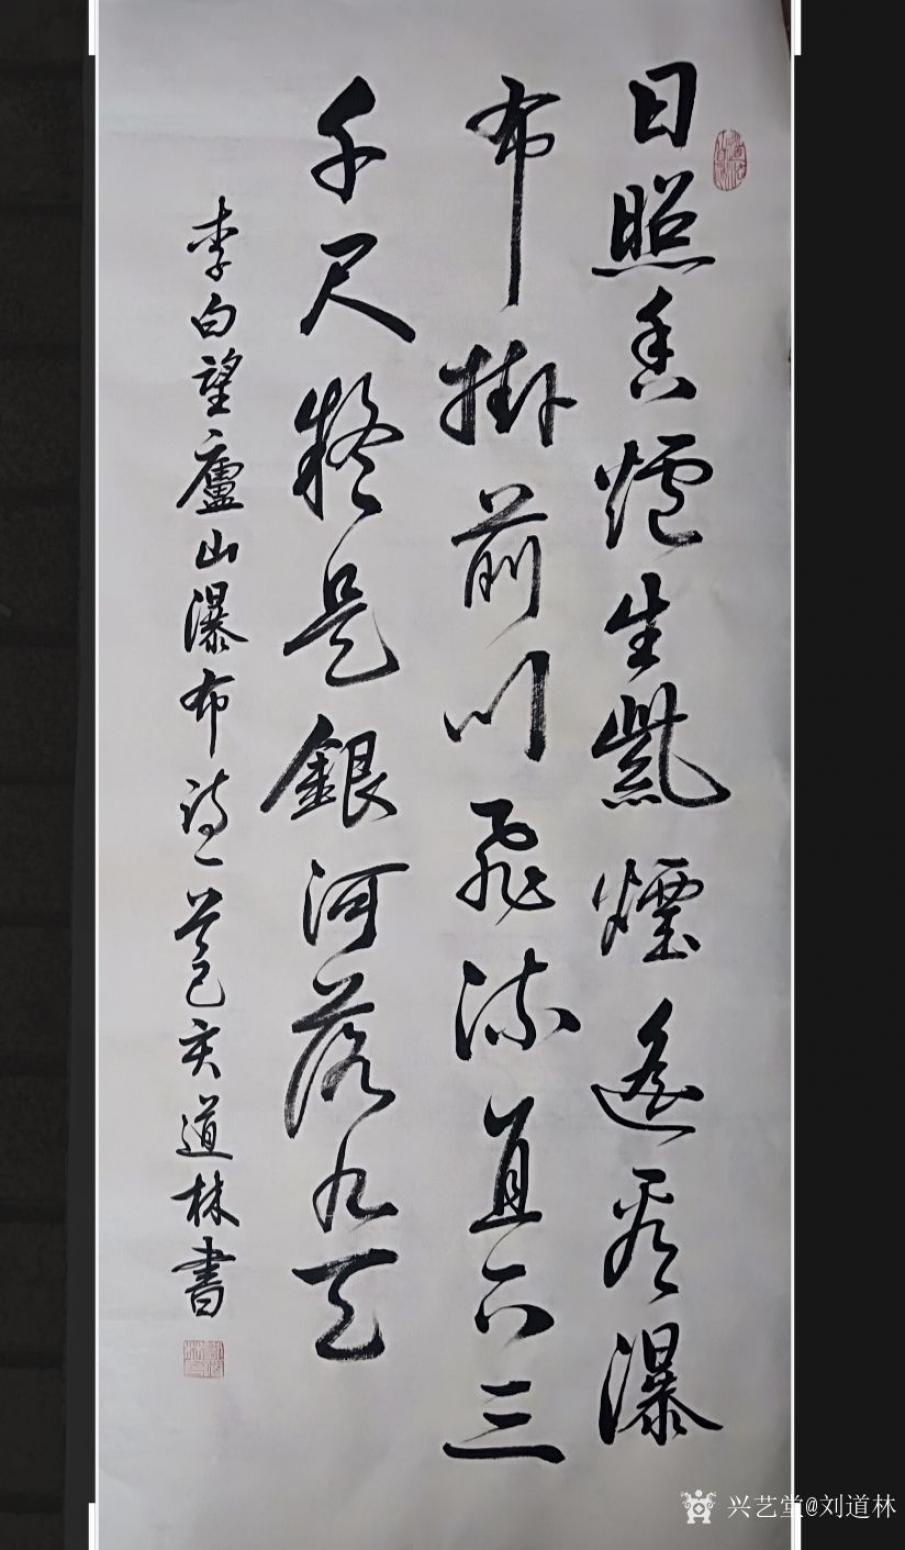 日照香爐生紫煙遙看瀑
布掛前川飛流直下三
千尺疑是銀河落九天
李白望廬山瀑布詩一首己亥道林書
兴艺堂@刘道林